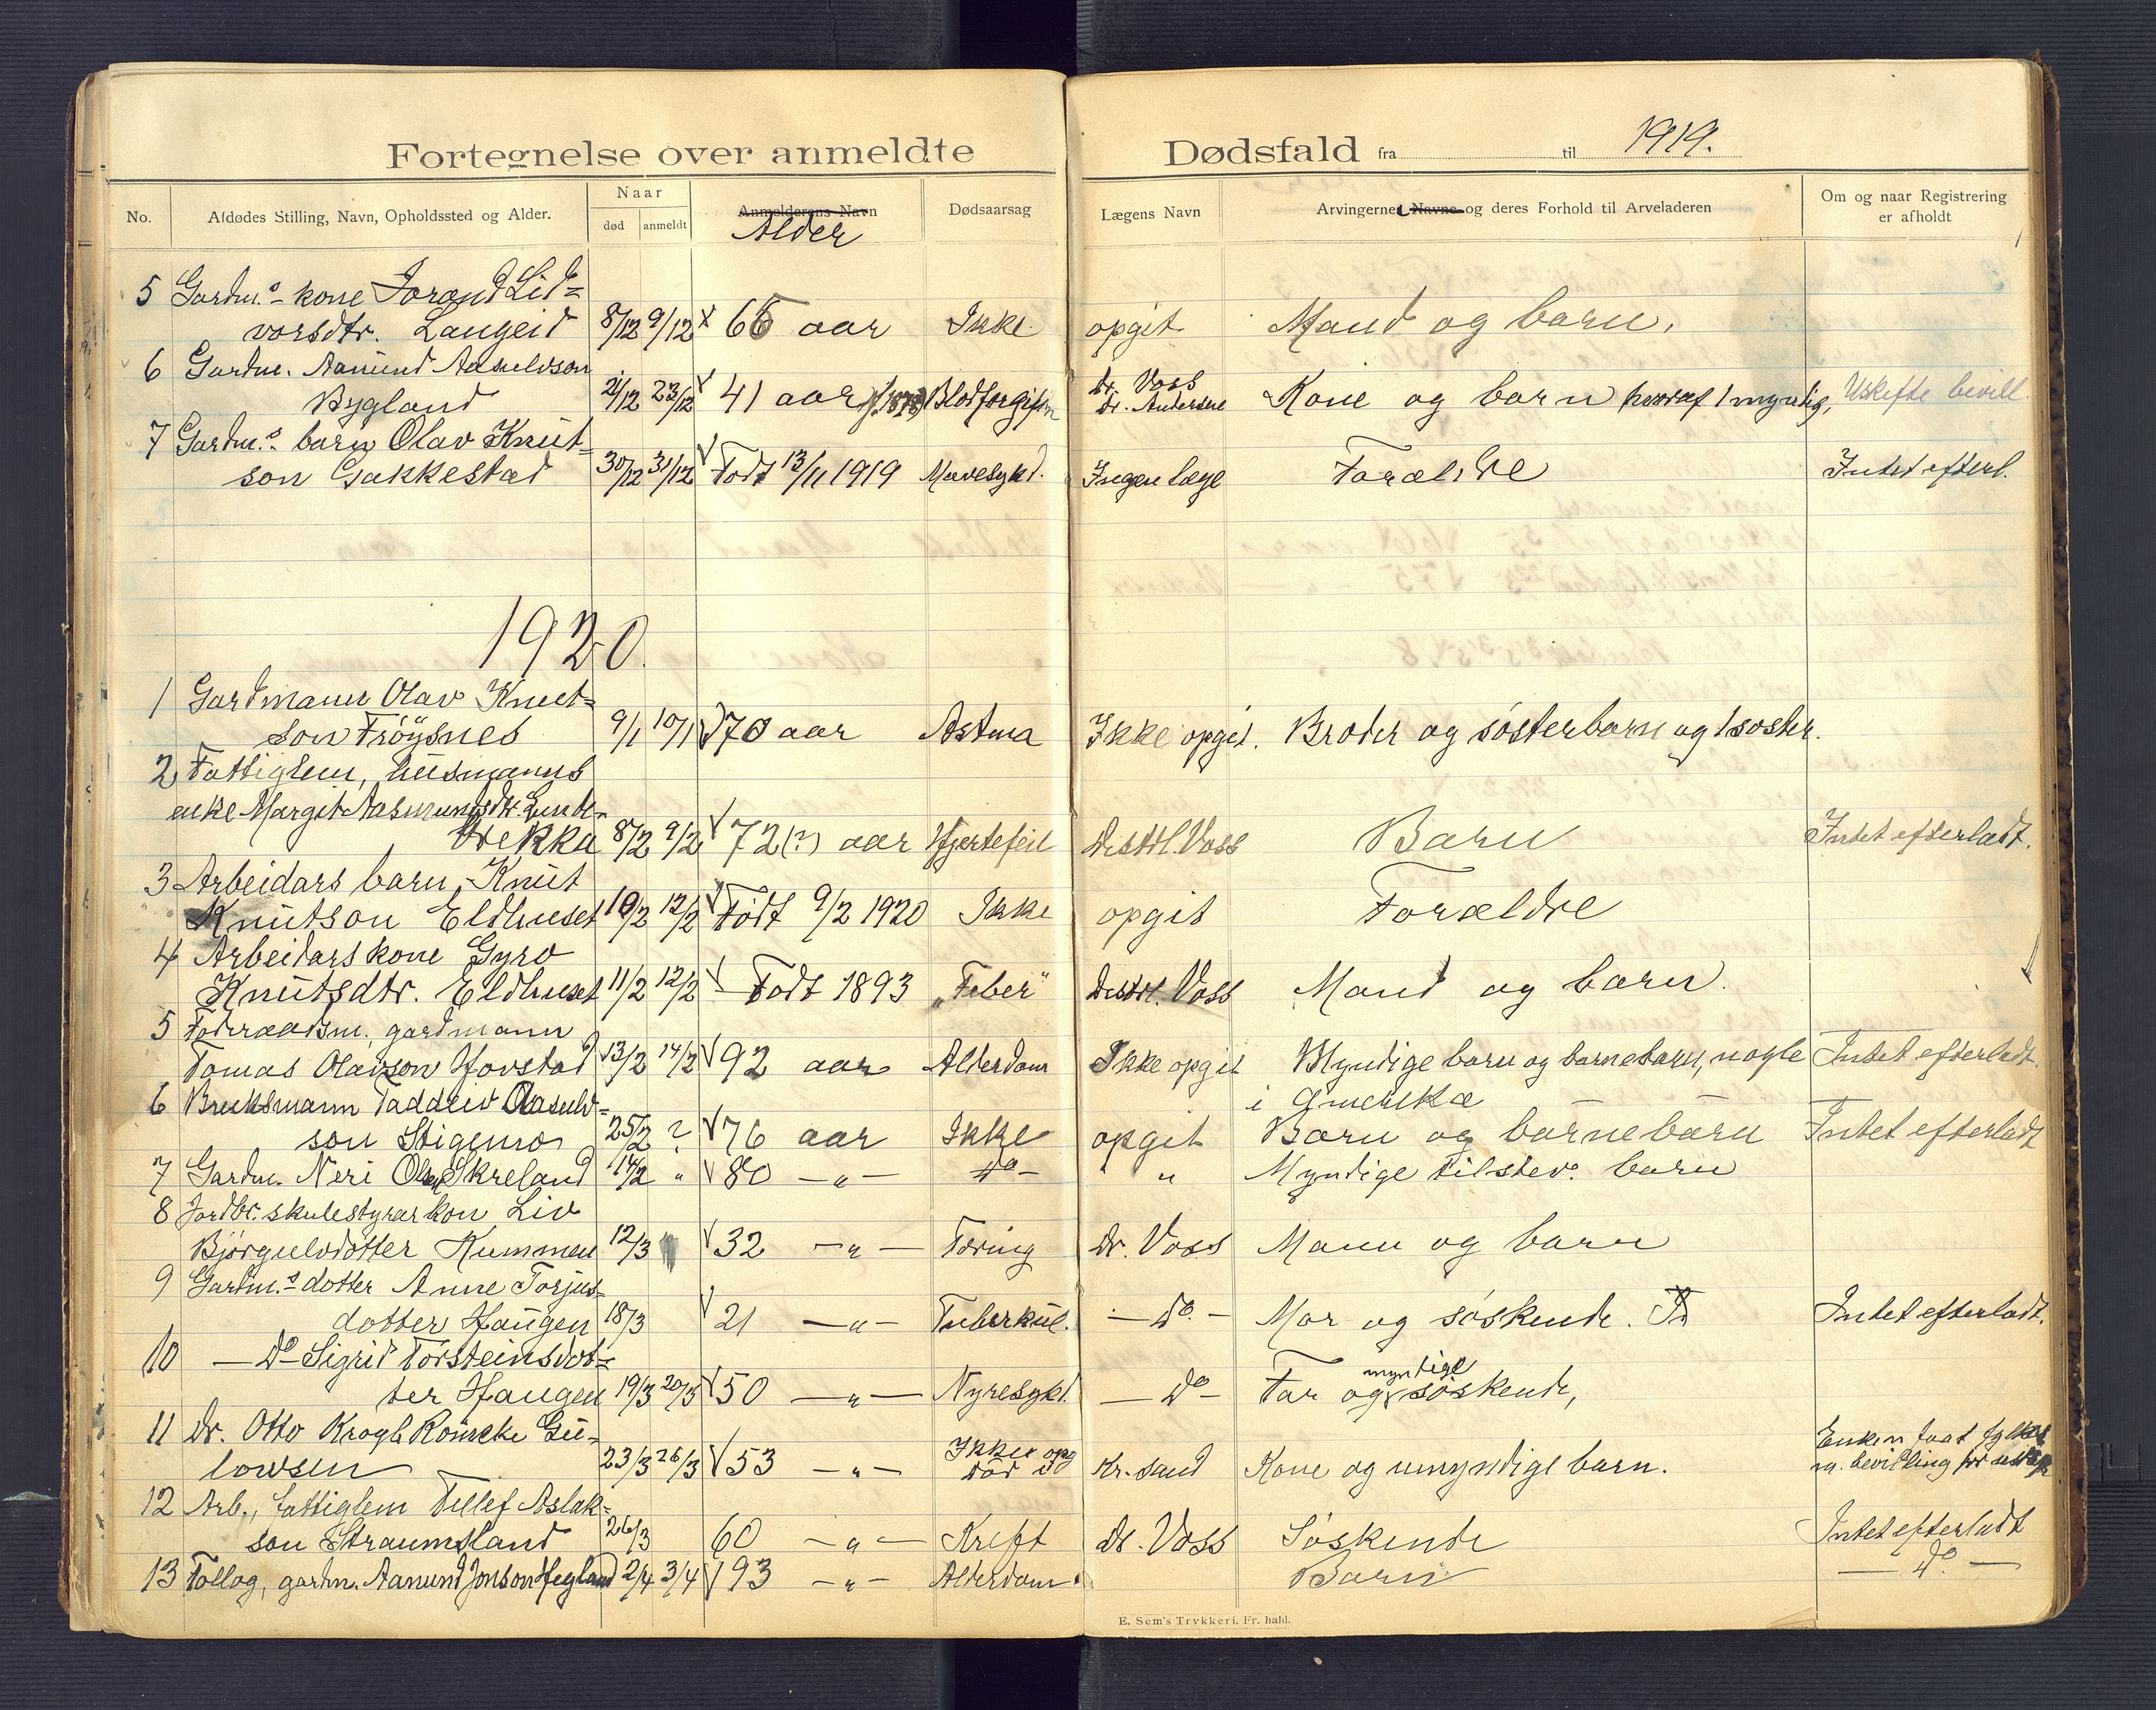 Fortegnelse over anmeldte Dødsfald fra til 1919.
No. Afdødes Stilling, Navn, Opholdssted og Alder. Naar død anmeldt Anmelderens Navn Alder Dødsaarsag Lægens Navn Arvingernes Navne og deres Forhold til Arveladeren Om og naar Registrering er afholdt
5 Gardm.s kone Jorand Lid=
vorsdtr. Langeid 8/12 9/12 66 aar Ikke opgit Mand og barn.
6 Gardm. Aamund Aasulvson
Bygland 21/12 23/12 41 aar (f. 1878) Blodforgiftn dr. Voss dr. Andersene Kone og barn hvoraf 1 myndig, Uskifte bevill.
7 Gardm.s barn Olav Knut=
son Gakkestad 30/12 31/12 Født 13/11 1919 Mavesykd. Ingen læge Forældre Intet efterl.
1920.
1 Gardmann Olav Knut=
son Frøysnes 9/1 10/1 70 aar Astma Ikke opgit. Broder og søsterbarn og 1 søster.
2 Fattiglem, husmanns
enke Margit Aasmundsdtr. Linde-
brekka 8/2 9/2 72(?) aar Hjertefeil Distrl. Voss Barn Intet efterladt.
3 Arbeidars barn, Knut
Knutson Eldhuset 10/2 12/2 Født 9/2 1920 Ikke opgit Forældre
4 Arbeidars kone Gyro
Knutsdtr. Eldhuset 11/2 12/2 Født 1893 „Feber" Distrl. Voss Mand og barn.
5 Foderaadsm. gardmann
Tomas Olavson Hovstad 13/2 14/2 92 aar Alderdom Ikke opgit Myndige barn og barnebarn, nogle Intet efterladt.
i Amerika
6 Bruksmann Taddeiv Aasulv=
son Stigemo 25/2 ? 76 aar Ikke opgit Barn og barnebarn Intet efterladt
7 Gardm. Neri Olsen Skreland 14/2 " 80 -"- do- " Myndige tilstev. barn
8 Jordbr. skulestyrar kon Liv
Bjørgulvdotter Kummen 12/3 32 -"- Tæring dr. Voss Mann og barn
9 Gardm.s dotter Anne Torjus-
dotter Haugen 18/3 21 -"- Tuberkul. -do.- Mor og søskende. Intet efterladt.
10 -do- Sigrid Torsteinsdot=
ter Haugen 19/3 20/3 50 -"- Nyresykd. -do- Far og myndige søskende,
11 Dr. Otto Krogh Römcke Gu-
lowsen 23/3 26/3 53 -"- Ikke opg død i Kr.sand Kone og umyndige barn. Enken faat fylkes
m. bevilling for uskifte
12 Arb., fattiglem Tellef Aslak=
son Straumsland 26/3 60 -"- Kreft dr. Voss Søskende Intet efterladt
13 Follog, gardm. Aamund Jonson Hegland 2/4 3/4 93 -"- Alderdom Barn -do.-
E. Sem's Trykkeri. Fr. hald.